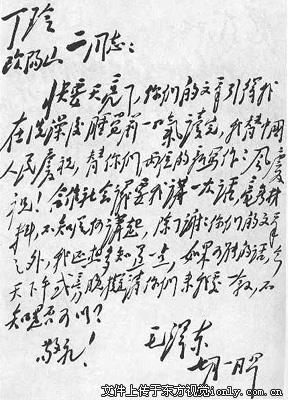 丁玲
欧阳山 二同志：
快要天亮了，你们的文章引得我
在洗澡后睡覺前一口氣讀完，我替中國
人民慶祝，替你们两位的新写作作风慶
祝！合作社会議要我講一次话，毫無材
料，不知從何講起，除了謝謝你们的文章
之外，我还想多知道一点，如果可能的话，今
天下午或傍晚擬請你们来我處一叙，不
知是否可以？
敬礼！
毛澤东
七月一日早
文件上传于东方视觉ionly.com.cn